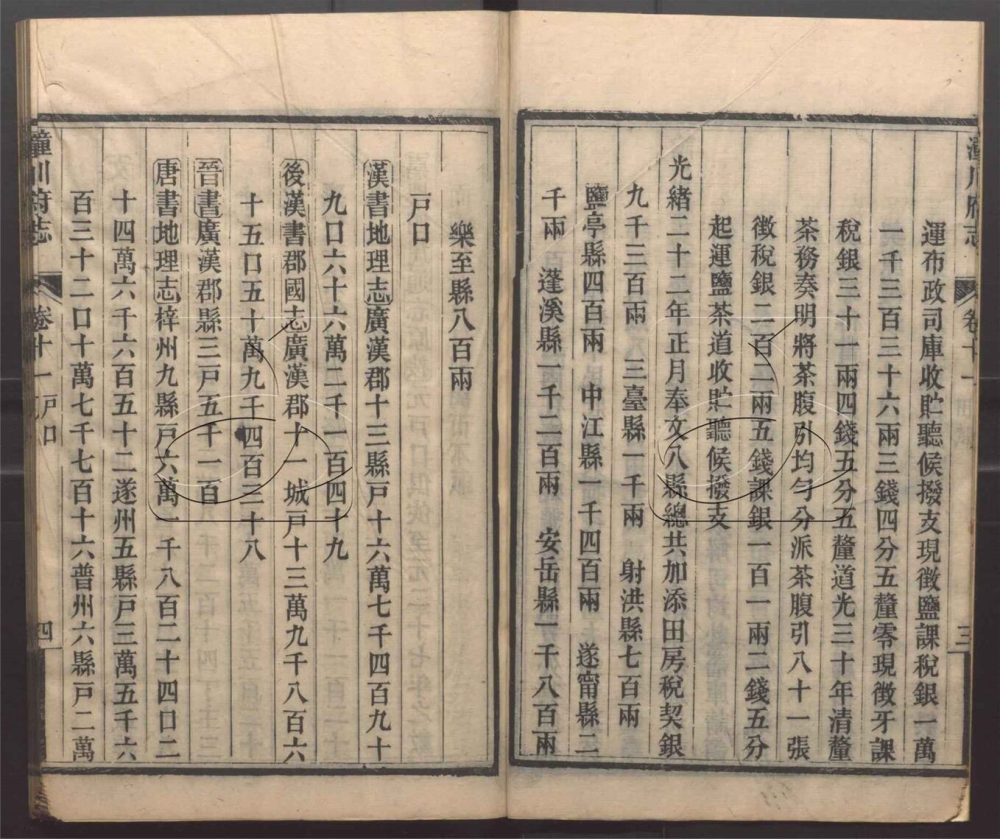 運布政司庫收貯聽候撥支現徵鹽課稅銀一萬
一千三百三十六兩三錢四分五釐零現徵牙課
稅銀三十一兩四錢五分五釐道光三十年清釐
茶務奏明將茶腹引均勻分派茶腹引八十一張
徵稅銀二百二兩五錢課銀一百一兩二錢五分
起運鹽茶道收貯聽候撥支
光緒二十二年正月奉文八縣總共加添田房稅契銀
九千三百兩 三臺縣一千兩 射洪縣七百兩
鹽亭縣四百兩 中江縣一千四百兩 遂甯縣二
千兩 蓬溪縣一千二百兩 安岳縣一千八百兩
潼川府志 卷十一 三
樂至縣八百兩
戶口
漢書地理志廣漢郡十三縣戶十六萬七千四百九十
九口六十六萬二千一百四十九
後漢書郡國志廣漢郡十一城戶十三萬九千八百六
十五口五十萬九千四百三十八
晉書廣漢郡縣三戶五千一百
唐書地理志梓州九縣戶六萬一千八百二十四口二
十四萬六千六百五十二遂州五縣戶三萬五千六
百三十二口十萬七千七百十六普州六縣戶二萬
潼川府志 卷十一 戶口 四